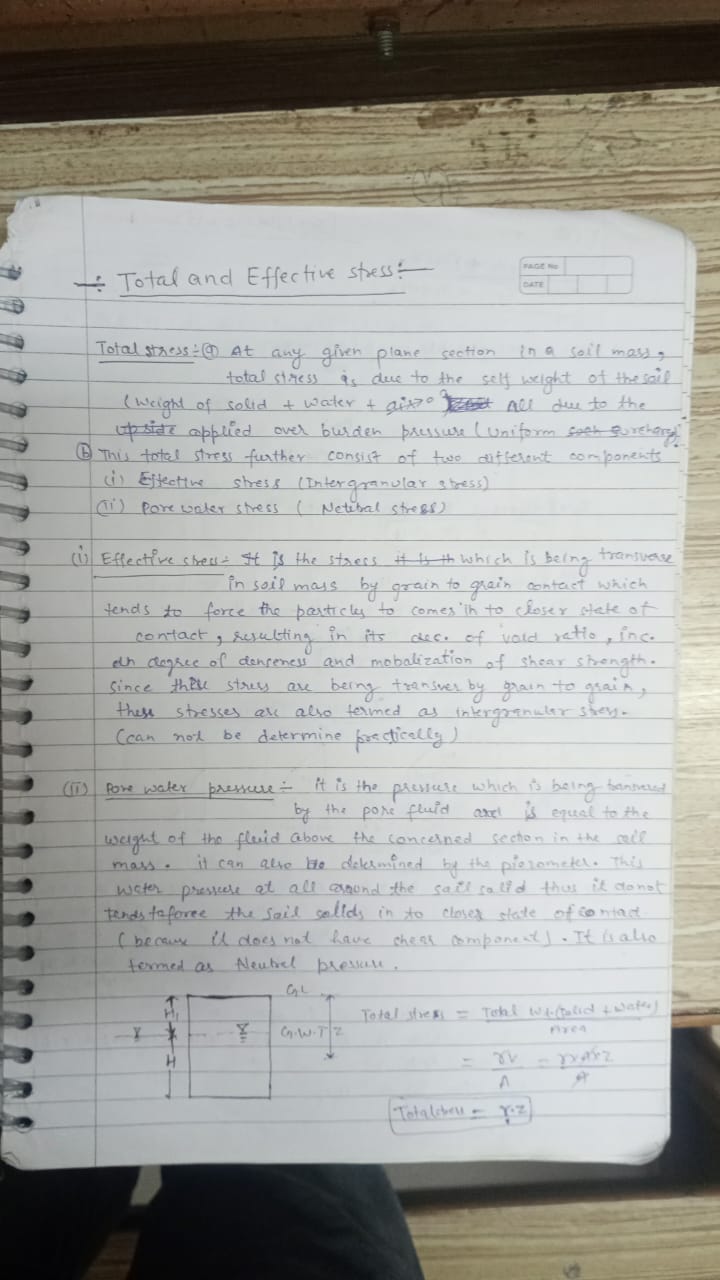 ÷ Total and Effective stress :-
PAGE No
DATE
Total stress :- (a) At any given plane section in a soil mass,
total stress is due to the self weight of the soil
(Weight of solid + water + air>0) All due to the
up side applied over burden pressure (Uniform such surcharge)
(b) This total stress further consist of two different components
(i) Effective stress (Intergranular stress)
(ii) Pore water stress ( Netural stress)
(i) Effective stress :- It is the stress it is th which is being transverse
in soil mass by grain to grain contact which
tends to force the particles to comes in to closer state of
contact, resulting in its dec. of void ratio, inc.
degree of denseness and mobalization of shear strength.
Since these stress are being transver by grain to grain,
these stresses are also termed as intergranular stress.
(can not be determine practically)
(ii) Pore water pressure :- it is the pressure which is being
by the pore fluid and is equal to the
weight of the fluid above the concerned section in the soil
mass. it can also be determined by the piezometer. This
water pressure at all around the soil solid thus it do not
tends to force the soil solids in to closer state of contact
(because it does not have shear component). It is also
termed as Neutrel pressure.
GL
H1
G.W.T
Z
H
Total stress = Total wt. (Solid + water) / Area
= γV / A = γ×A×Z / A
Total stress = γ.z